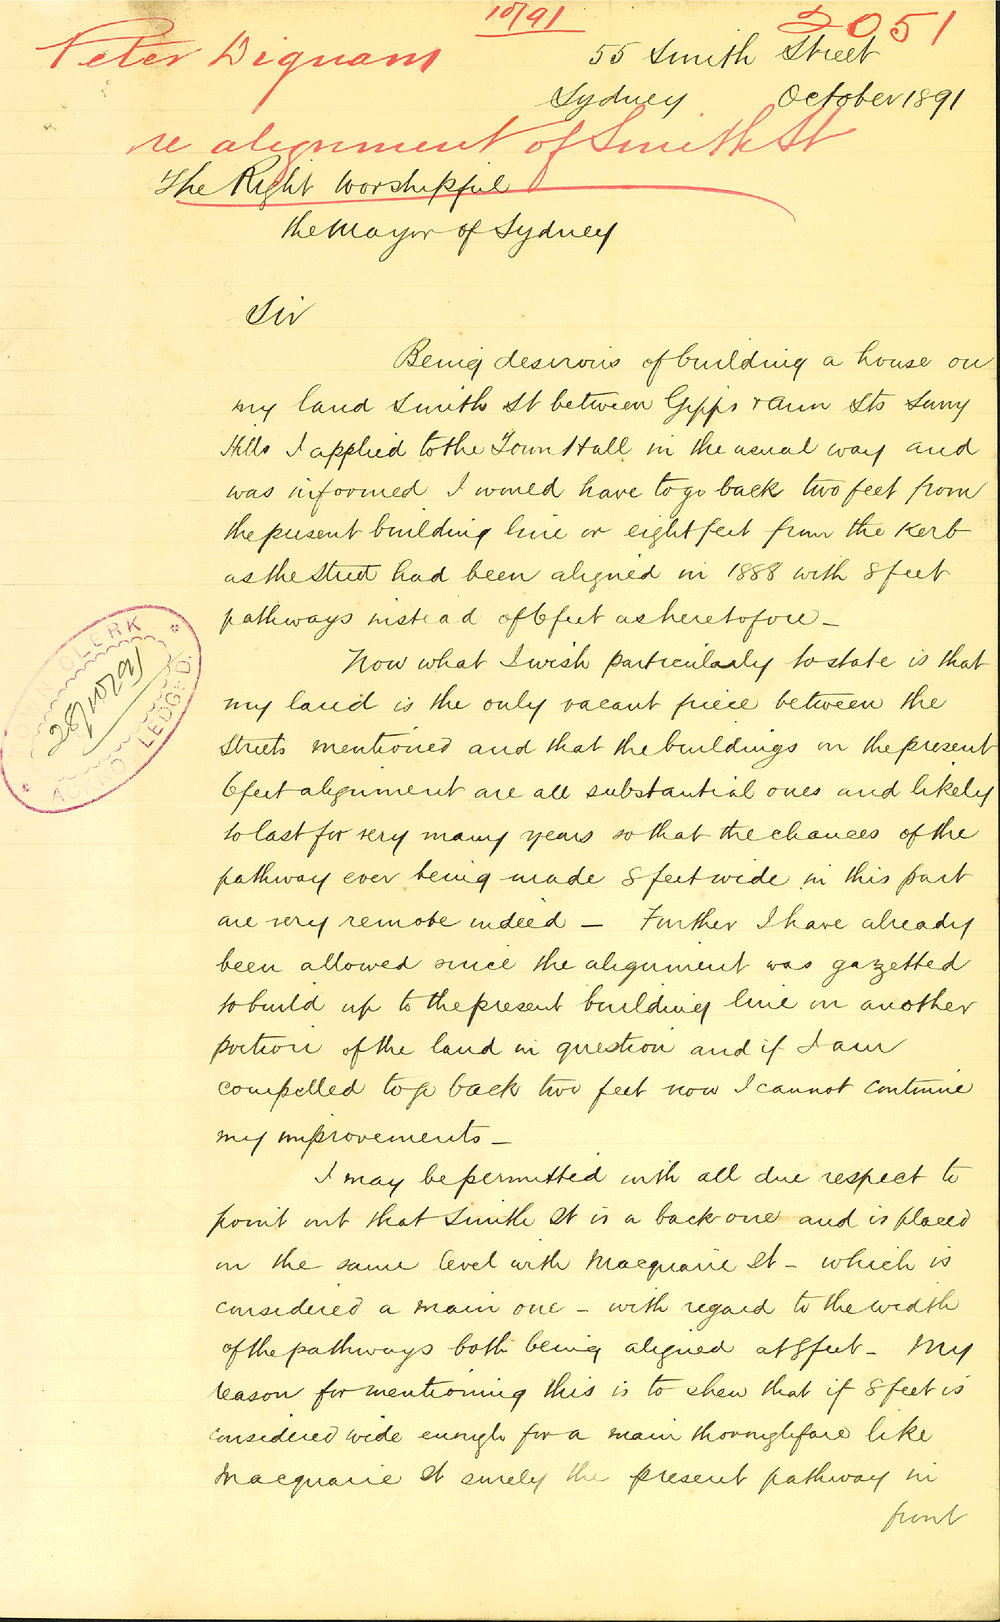 10/91
2051
Peter Dignam
55 Smith Street
Sydney October 1891
re alignment of Smith St
The Right Worshipful
the Mayor of Sydney
Sir
Being desirous of building a house on
my land Smith St between Gipps & Ann Sts Surry
Hills I applied to the Town Hall in the usual way and
was informed I would have to go back two feet from
the present building line or eight feet from the Kerb
as the Street had been aligned in 1888 with 8 feet
pathways instead of 6 feet as heretofore -
Now what I wish particularly to state is that
my land is the only vacant piece between the
Streets mentioned and that the buildings on the present
6 feet alignment are all substantial ones and likely
to last for very many years so that the chances of the
pathway ever being made 8 feet wide in this part
are very remote indeed - Further I have already
been allowed since the alignment was gazetted
to build up to the present building line on another
portion of the land in question and if I am
compelled to go back two feet now I cannot continue
my improvements -
I may be permitted with all due respect to
point out that Smith St is a back one and is placed
on the same level with Macquarie St - which is
considered a main one - with regard to the width
of the pathways both being aligned at 8 feet - My
reason for mentioning this is to shew that if 8 feet is
considered wide enough for a main thoroughfare like
Macquarie St surely the present pathway in
front
TOWN CLERK
28/10/91
ACKNOWLEDGED.